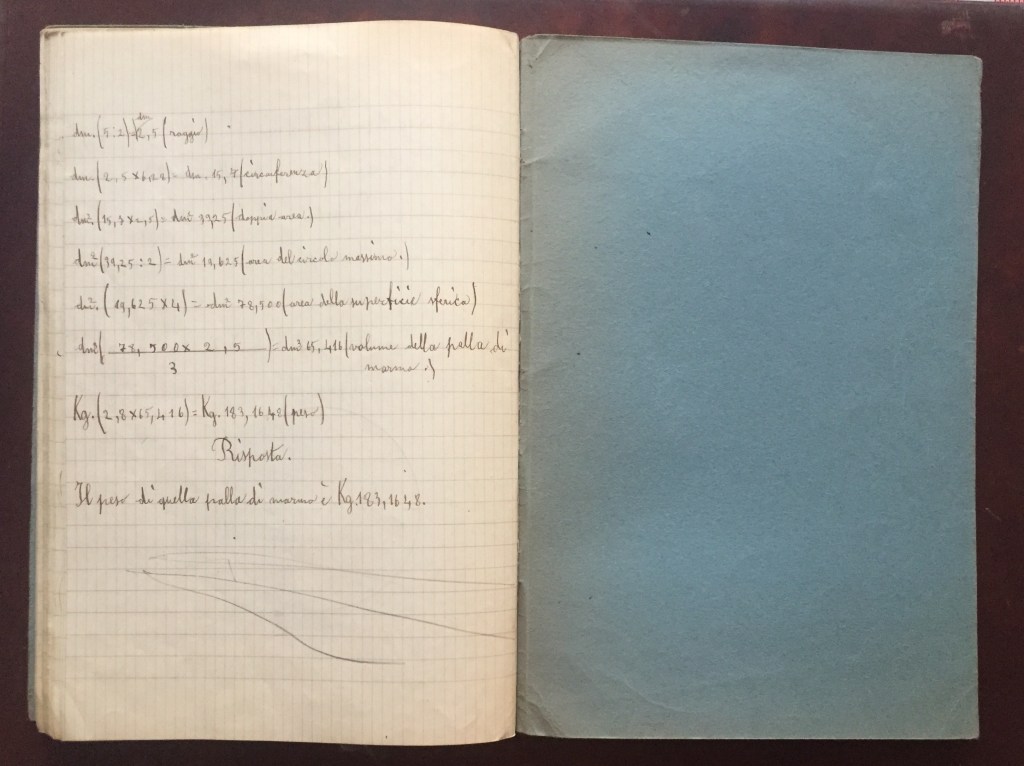 dm
dm. (5:2)= 2,5 (raggio)
dm. (2,5 x 6,28) = dm. 15,7 (circonferenza)
dm². (15,7 x 2,5) = dm² 39,25 (doppia area.)
dm² (39,25 : 2) = dm² 19,625 (area del circolo massimo.)
dm². (19,625 x 4) = dm² 78,500 (area della superficie sferica)
dm³ ( 78,500 x 2,5 ) = dm³ 65,416 (volume della palla di
3 marmo.)
Kg. (2,8 x 65,416) = Kg. 183,1648 (peso)
Risposta.
Il peso di quella palla di marmo è Kg. 183,1648.